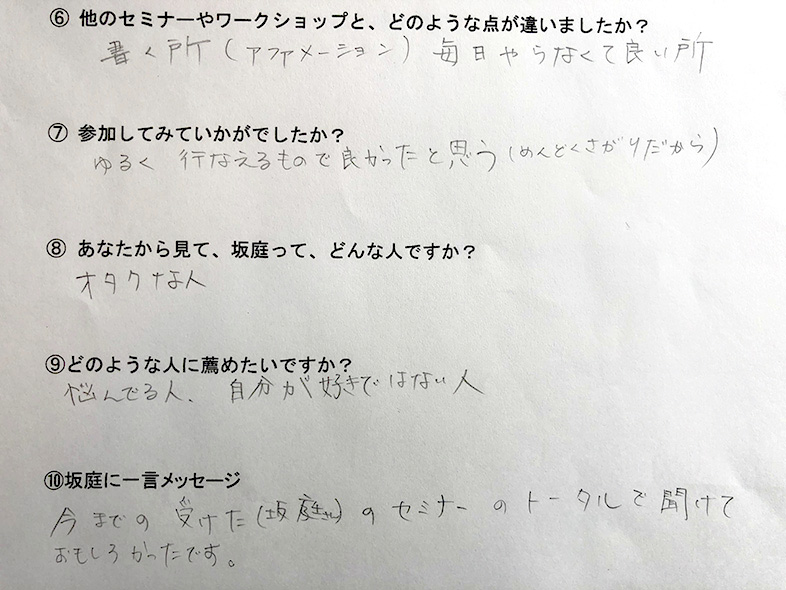 ⑥ 他のセミナーやワークショップと、どのような点が違いましたか？
書く所（アファメーション）毎日やらなくて良い所
⑦ 参加してみていかがでしたか？
ゆるく 行なえるもので良かったと思う（めんどくさがりだから）
⑧ あなたから見て、坂庭って、どんな人ですか？
オタクな人
⑨どのような人に薦めたいですか？
悩んでる人、自分が好きではない人
⑩坂庭に一言メッセージ
今までの 受けた（坂庭さん）のセミナーのトータルで聞けて
おもしろかったです。